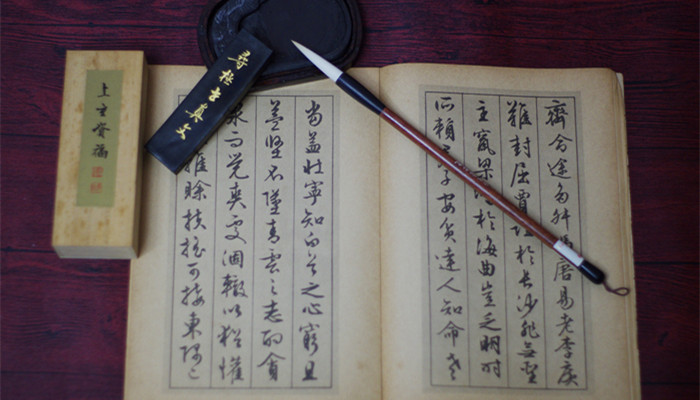 齊命途多舛馮唐易老李廣
難封屈賈誼於長沙非無聖
主竄梁鴻於海曲豈乏明時
所賴君子安貧達人知命老
當益壯寧知白首之心窮且
益堅不墜青雲之志酌貪
泉而覺爽處涸轍以猶懽
雖賒扶搖可接東隅已
上主賚福